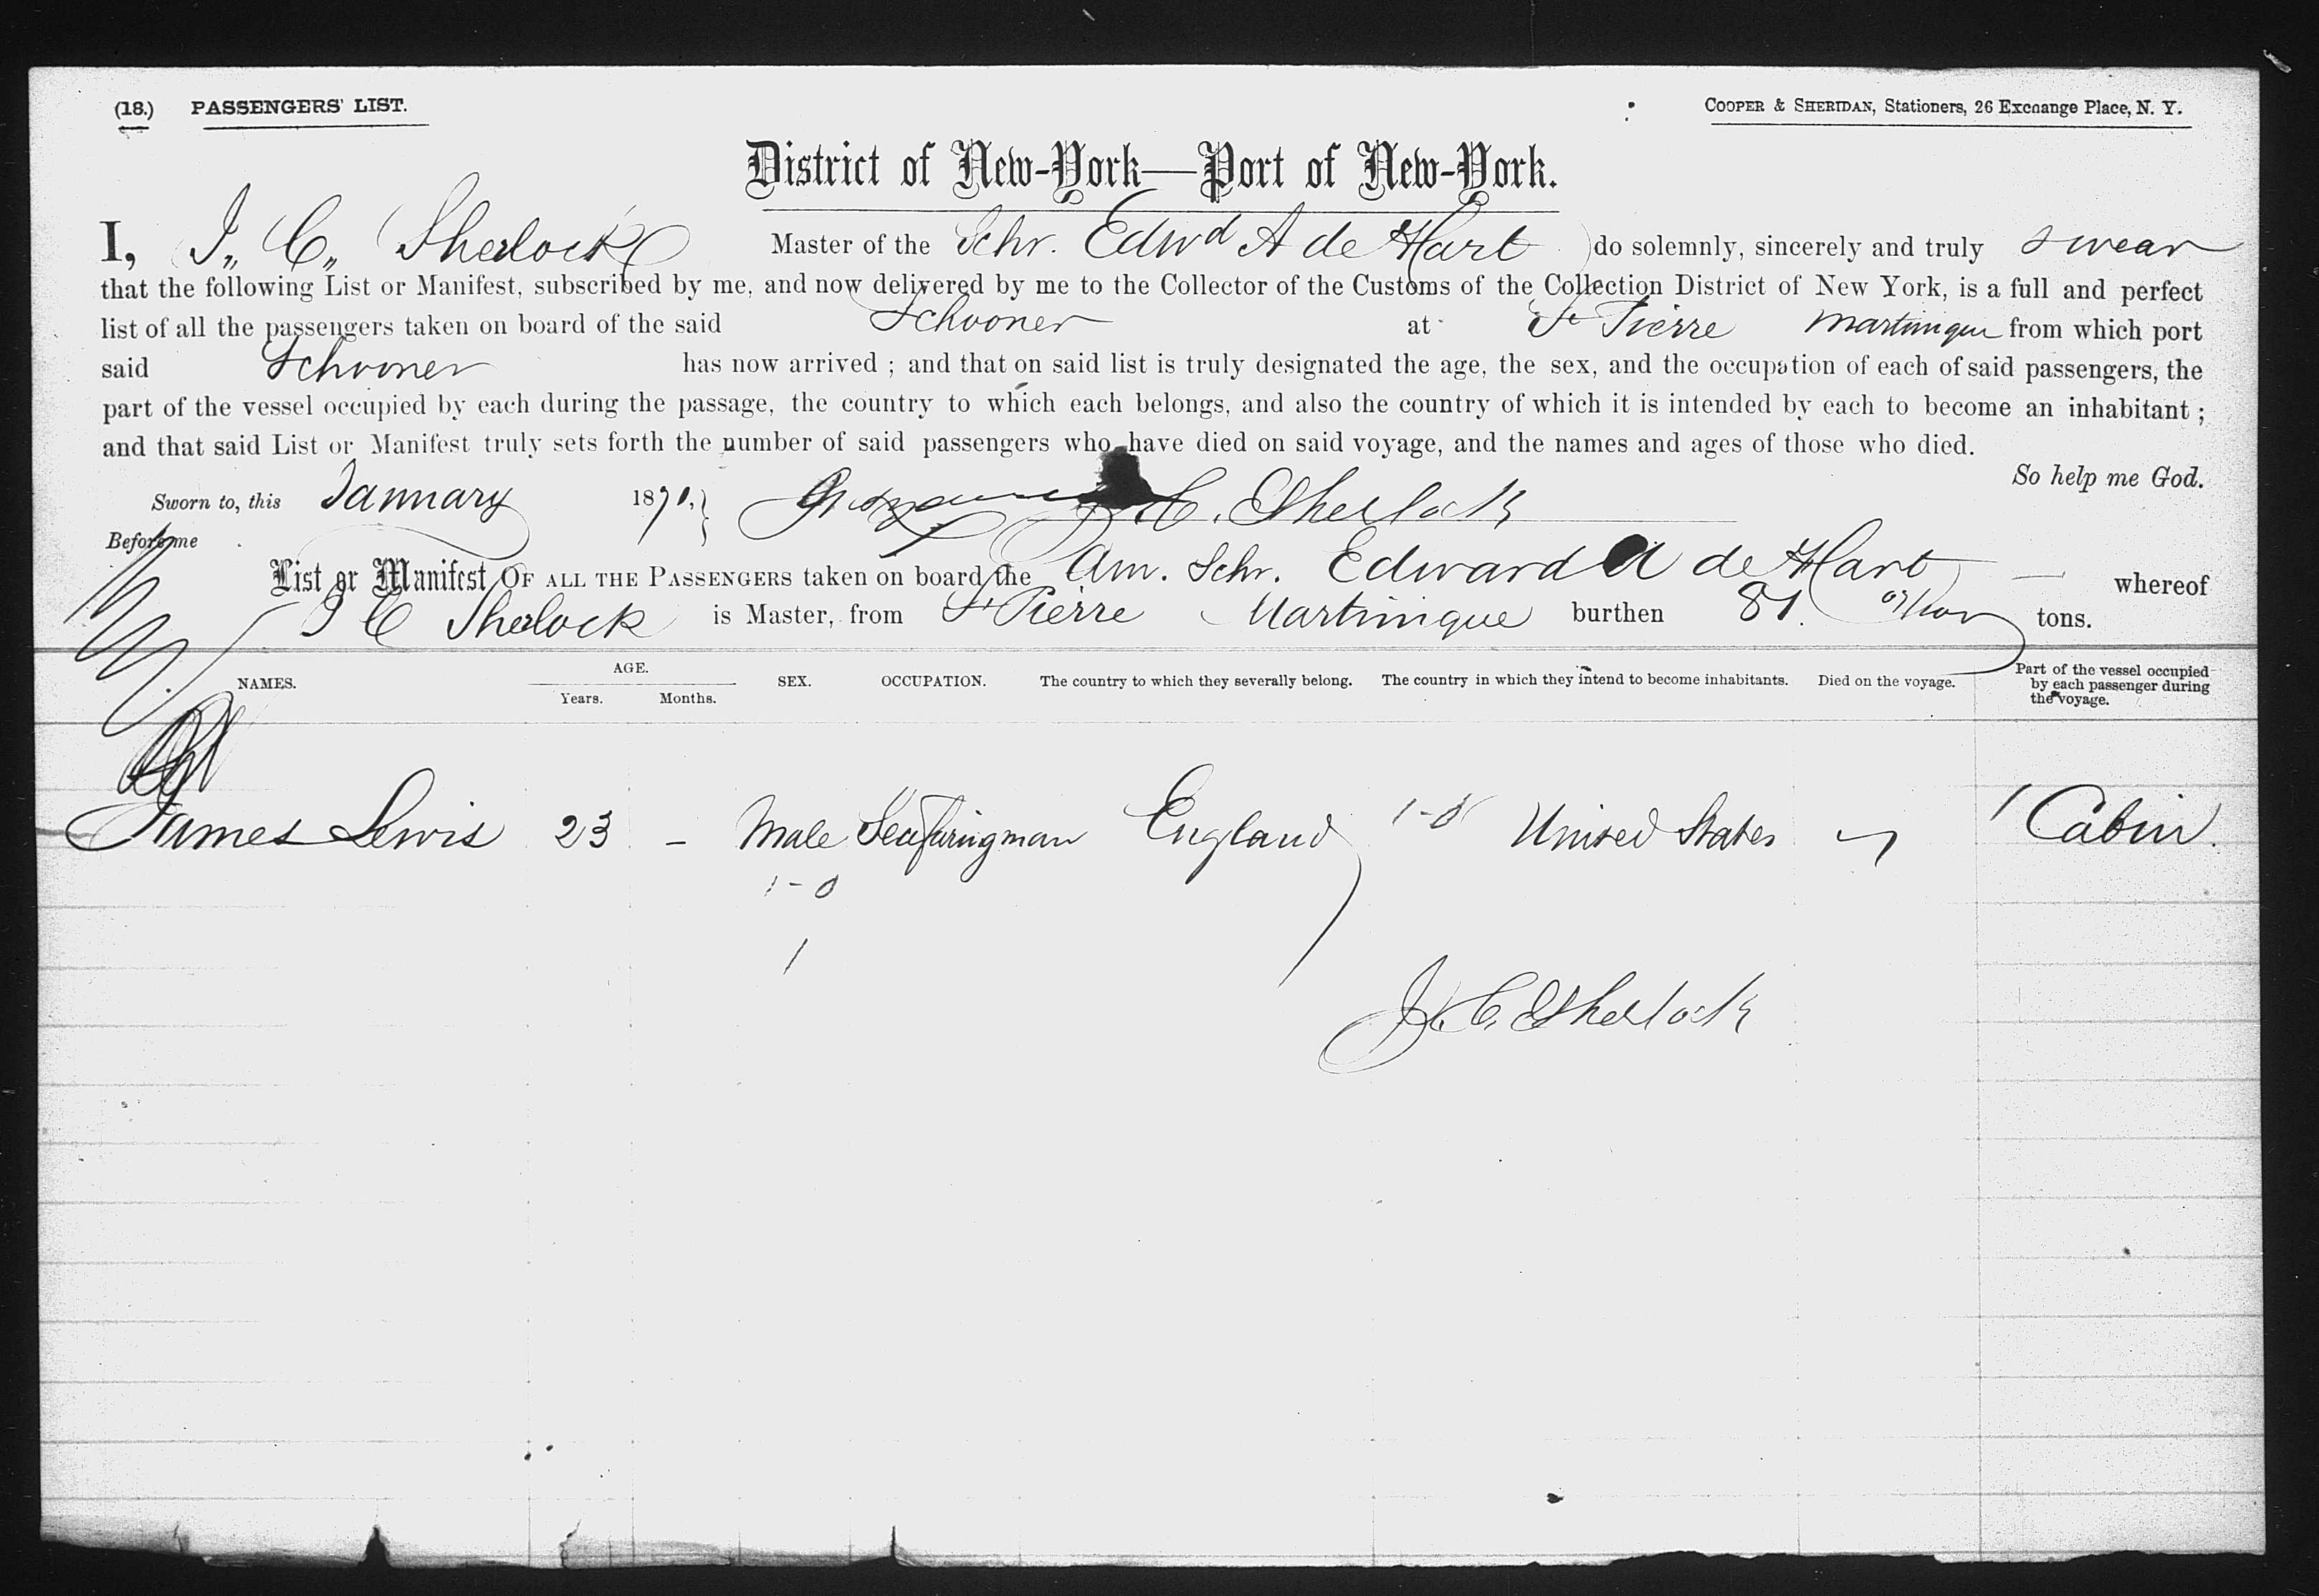 (18.) PASSENGERS' LIST. COOPER & SHERIDAN, Stationers, 26 Exchange Place, N. Y.
District of New-York—Port of New-York.
I, J,, C,, Sherlock Master of the Schr. Edwd A de Hart do solemnly, sincerely and truly swear
that the following List or Manifest, subscribed by me, and now delivered by me to the Collector of the Customs of the Collection District of New York, is a full and perfect
list of all the passengers taken on board of the said Schooner at St Pierre Martinique from which port
said Schooner has now arrived ; and that on said list is truly designated the age, the sex, and the occupation of each of said passengers, the
part of the vessel occupied by each during the passage, the country to which each belongs, and also the country of which it is intended by each to become an inhabitant ;
and that said List or Manifest truly sets forth the number of said passengers who have died on said voyage, and the names and ages of those who died.
So help me God.
Sworn to, this January 1871, J. C. Sherlock
Before me
List or Manifest OF ALL THE PASSENGERS taken on board the Am. Schr. Edward A de Hart whereof
J C Sherlock is Master, from St Pierre Martinique burthen 81. tons.
NAMES. AGE. Years. Months. SEX. OCCUPATION. The country to which they severally belong. The country in which they intend to become inhabitants. Died on the voyage. Part of the vessel occupied by each passenger during the voyage.
James Lewis 23 - Male Seafaringman England 1-0 United States 1 Cabin.
1-0
1
J. C. Sherlock